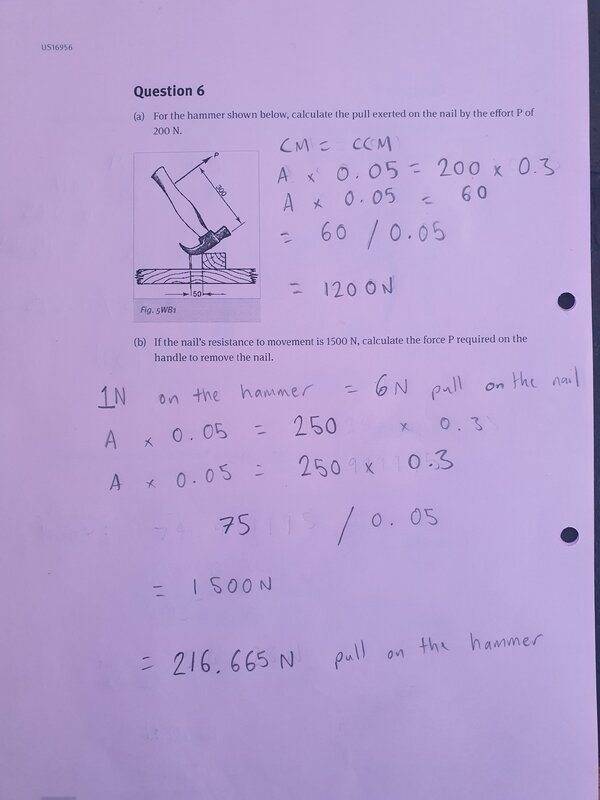 US16956
Question 6
(a) For the hammer shown below, calculate the pull exerted on the nail by the effort P of
200 N.
CM = CCM
A x 0.05 = 200 x 0.3
A x 0.05 = 60
= 60 / 0.05
= 1200N
P
300
50
Fig. 5WB1
(b) If the nail's resistance to movement is 1500 N, calculate the force P required on the
handle to remove the nail.
1N on the hammer = 6N pull on the nail
A x 0.05 = 250 x 0.3
A x 0.05 = 250 x 0.3
75 / 0.05
= 1500N
= 216.665N pull on the hammer